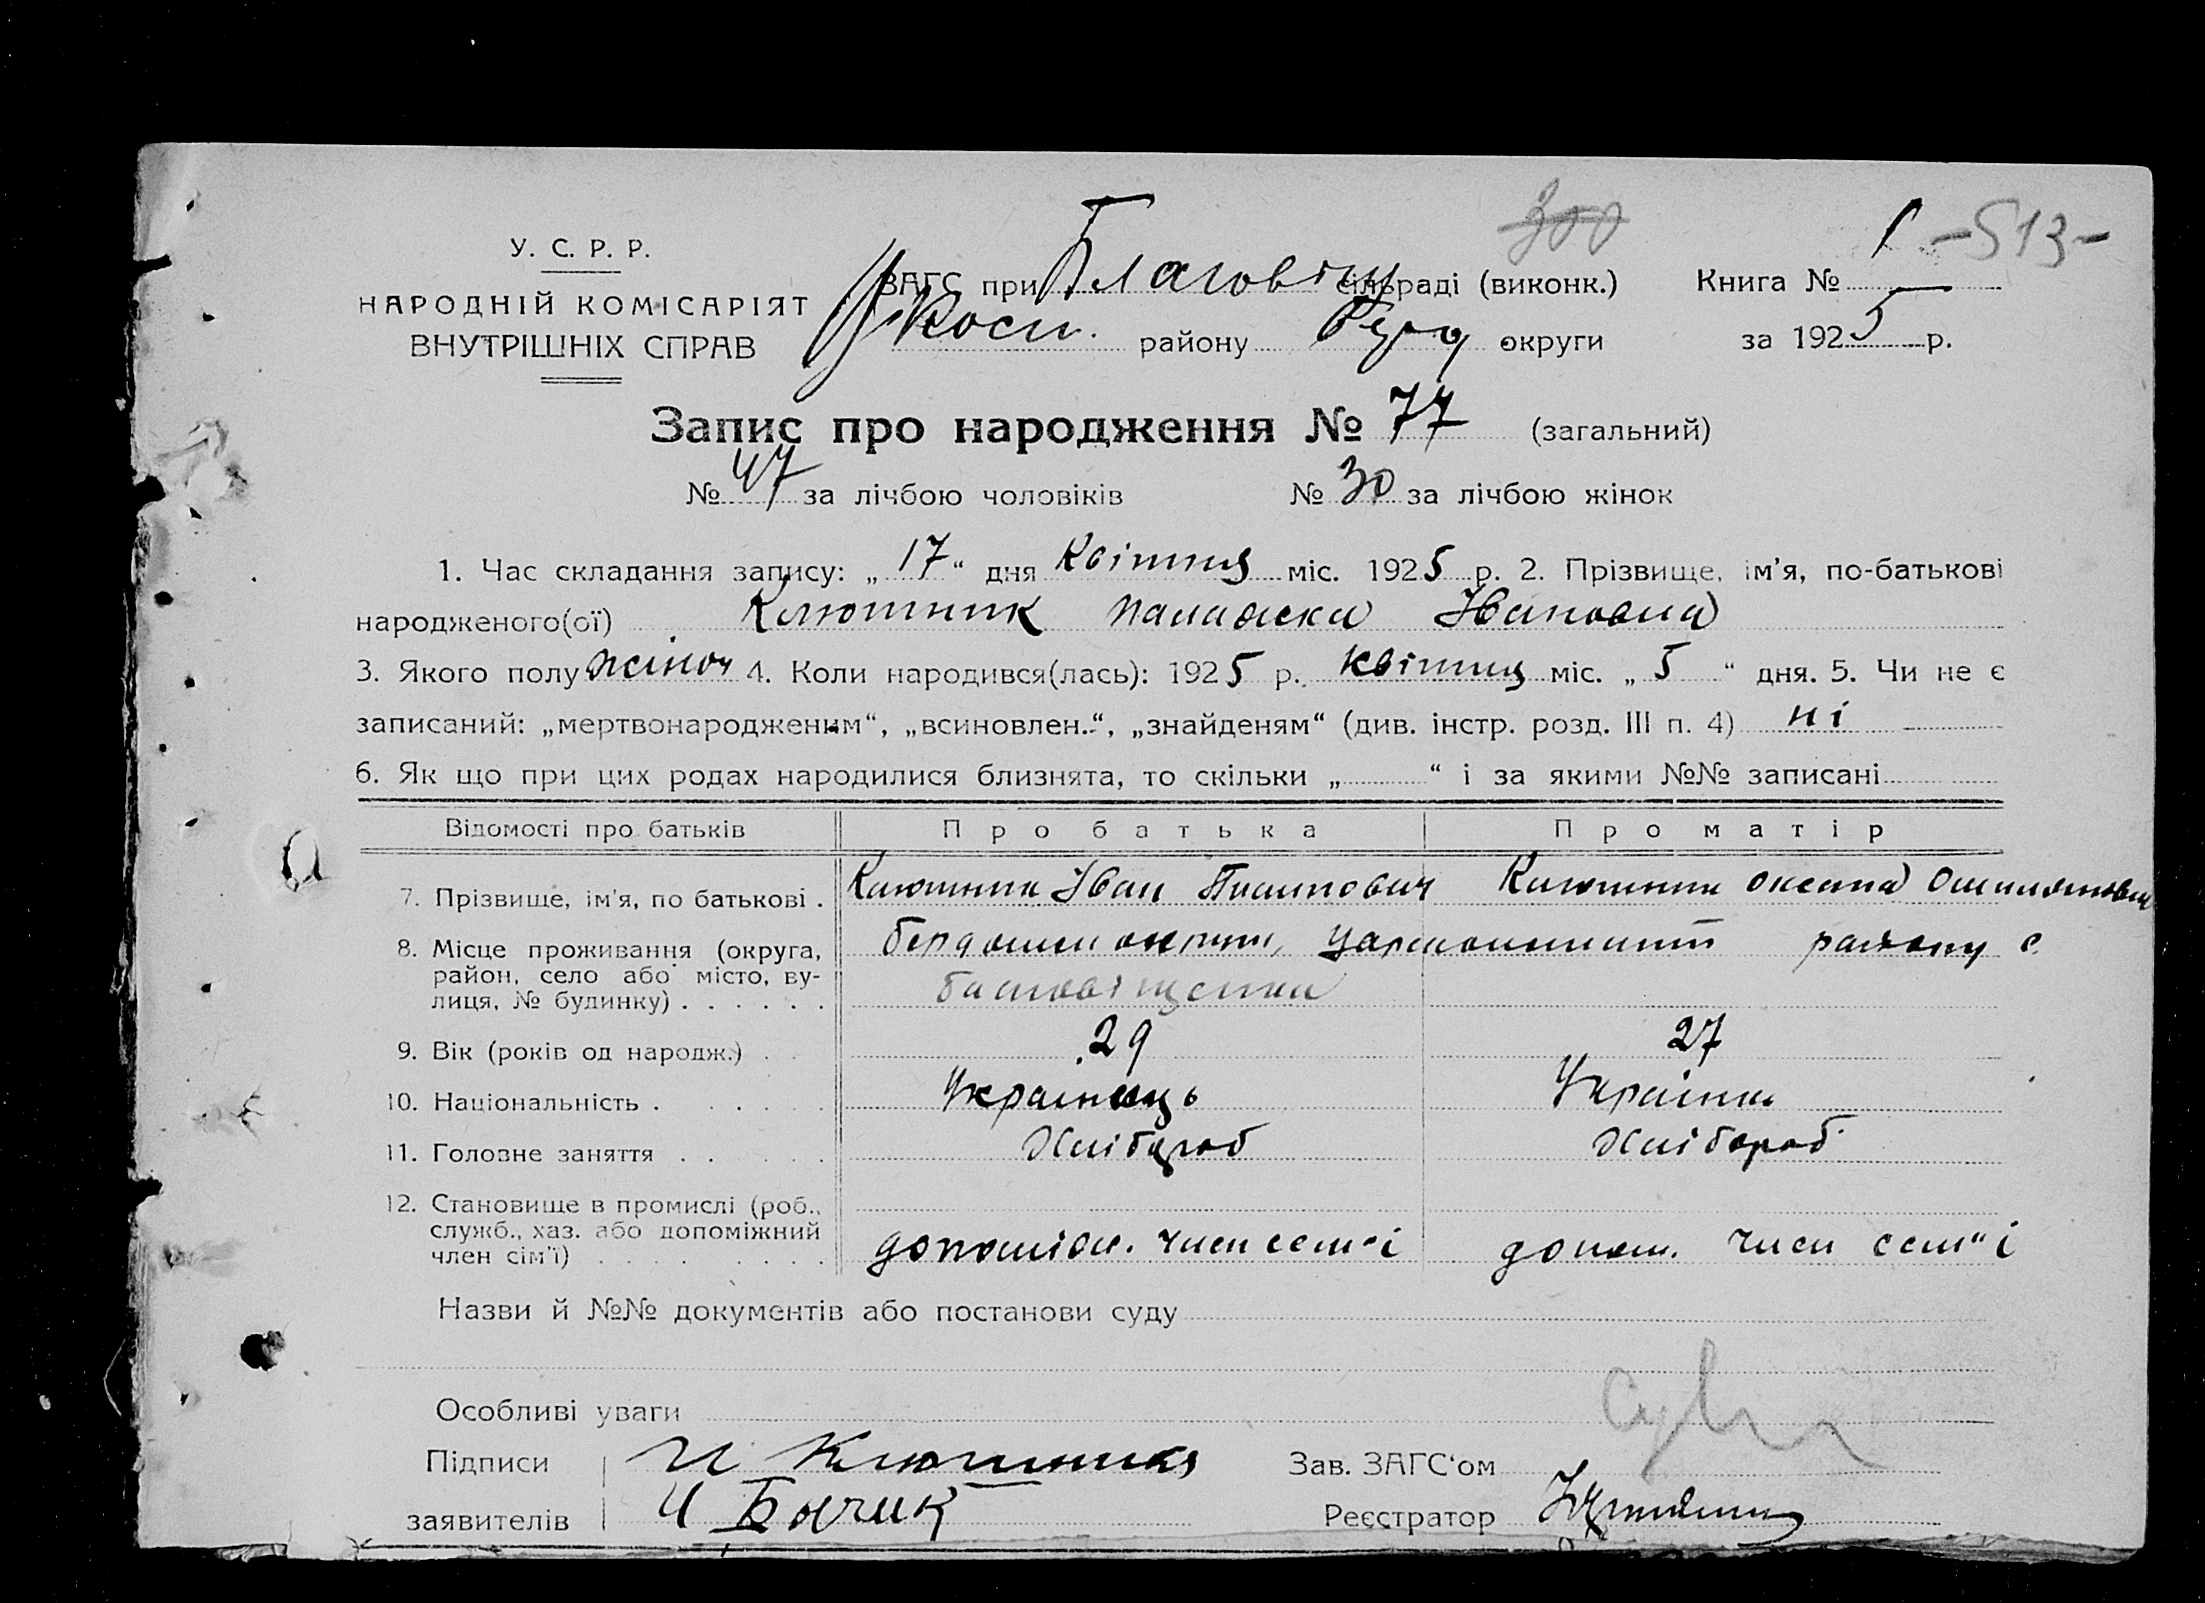 300 1 -513-
У. С. Р. Р.
НАРОДНІЙ КОМІСАРІЯТ
ВНУТРІШНІХ СПРАВ
ЗАГС при Благовіщ сільраді (виконк.) Книга №
району Берд округи за 1925 р.
Запис про народження № 77 (загальний)
№ 47 за лічбою чоловіків № 30 за лічбою жінок
1. Час складання запису: „17“ дня Квітня міс. 1925 р. 2. Прізвище, ім’я, по-батькові
народженого(ої) Клютник Палажка Івановна
3. Якого полу жіноч 4. Коли народився(лась): 1925 р. квітня міс. „5“ дня. 5. Чи не є
записаний: „мертвонародженим“, „всиновлен..“, „знайденям“ (див. інстр. розд. III п. 4) ні
6. Як що при цих родах народилися близнята, то скільки „ “ і за якими №№ записані
Відомості про батьків Про батька Про матір
7. Прізвище, ім’я, по батькові . Клютник Іван Пилипович Клютник Оксана
8. Місце проживання (округа, район, село або місто, вулиця, № будинку) . . . . . . району с.
9. Вік (років од народж.) . . 29 27
10. Національність . . . . . . Українець Українка
11. Головне заняття . . . . . Хлібороб Хлібороб
12. Становище в промислі (роб.,
служб., хаз. або допоміжний
член сім’ї) . . . . . . . . допоміж. член сем"ї допом. член сем"ї
Назви й №№ документів або постанови суду
Особливі уваги
Підписи И Клютник Зав. ЗАГС‘ом
заявителів Реєстратор